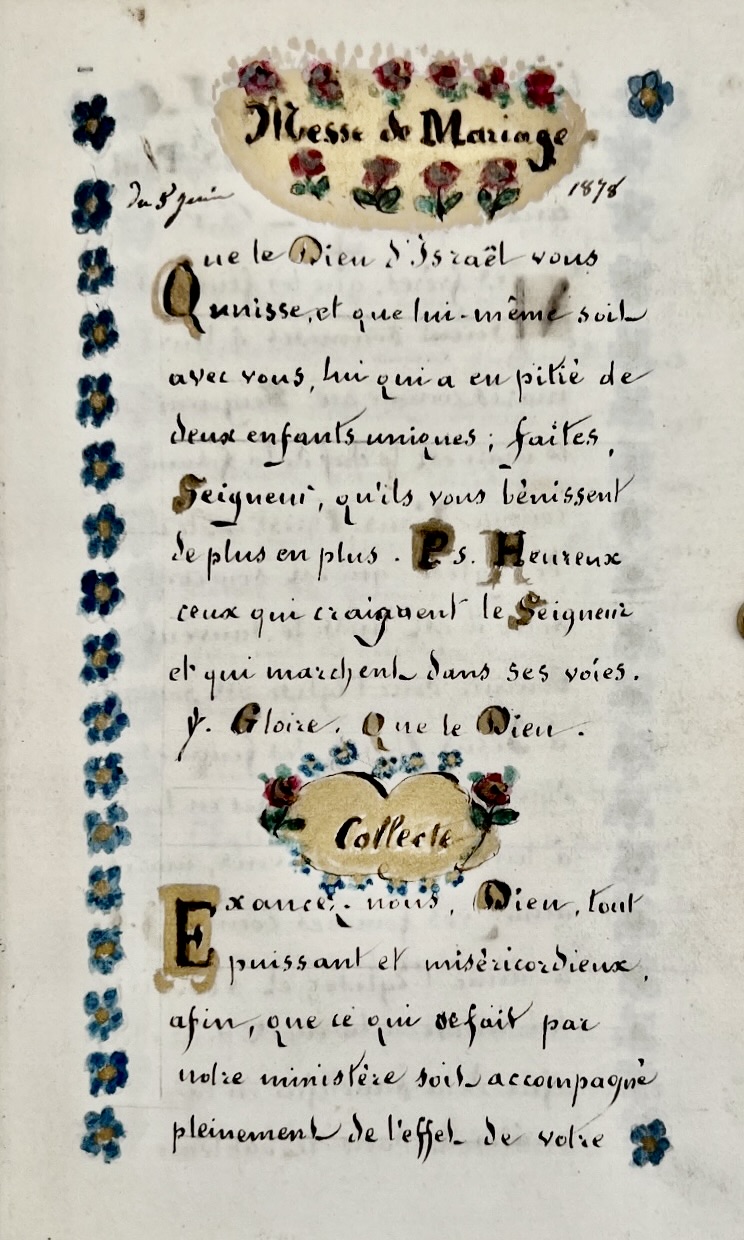 Messe de Mariage
du 5 juin 1878
Que le Dieu d'Israël vous
unisse, et que lui-même soit
avec vous, lui qui a eu pitié de
deux enfants uniques ; faites,
Seigneur, qu'ils vous bénissent
de plus en plus. Ps. Heureux
ceux qui craignent le Seigneur
et qui marchent dans ses voies.
℣. Gloire. Que le Dieu.
Collecte
Exancez-nous, Dieu, tout
puissant et miséricordieux,
afin, que ce qui se fait par
notre ministère soit accompagné
pleinement de l'effet de votre